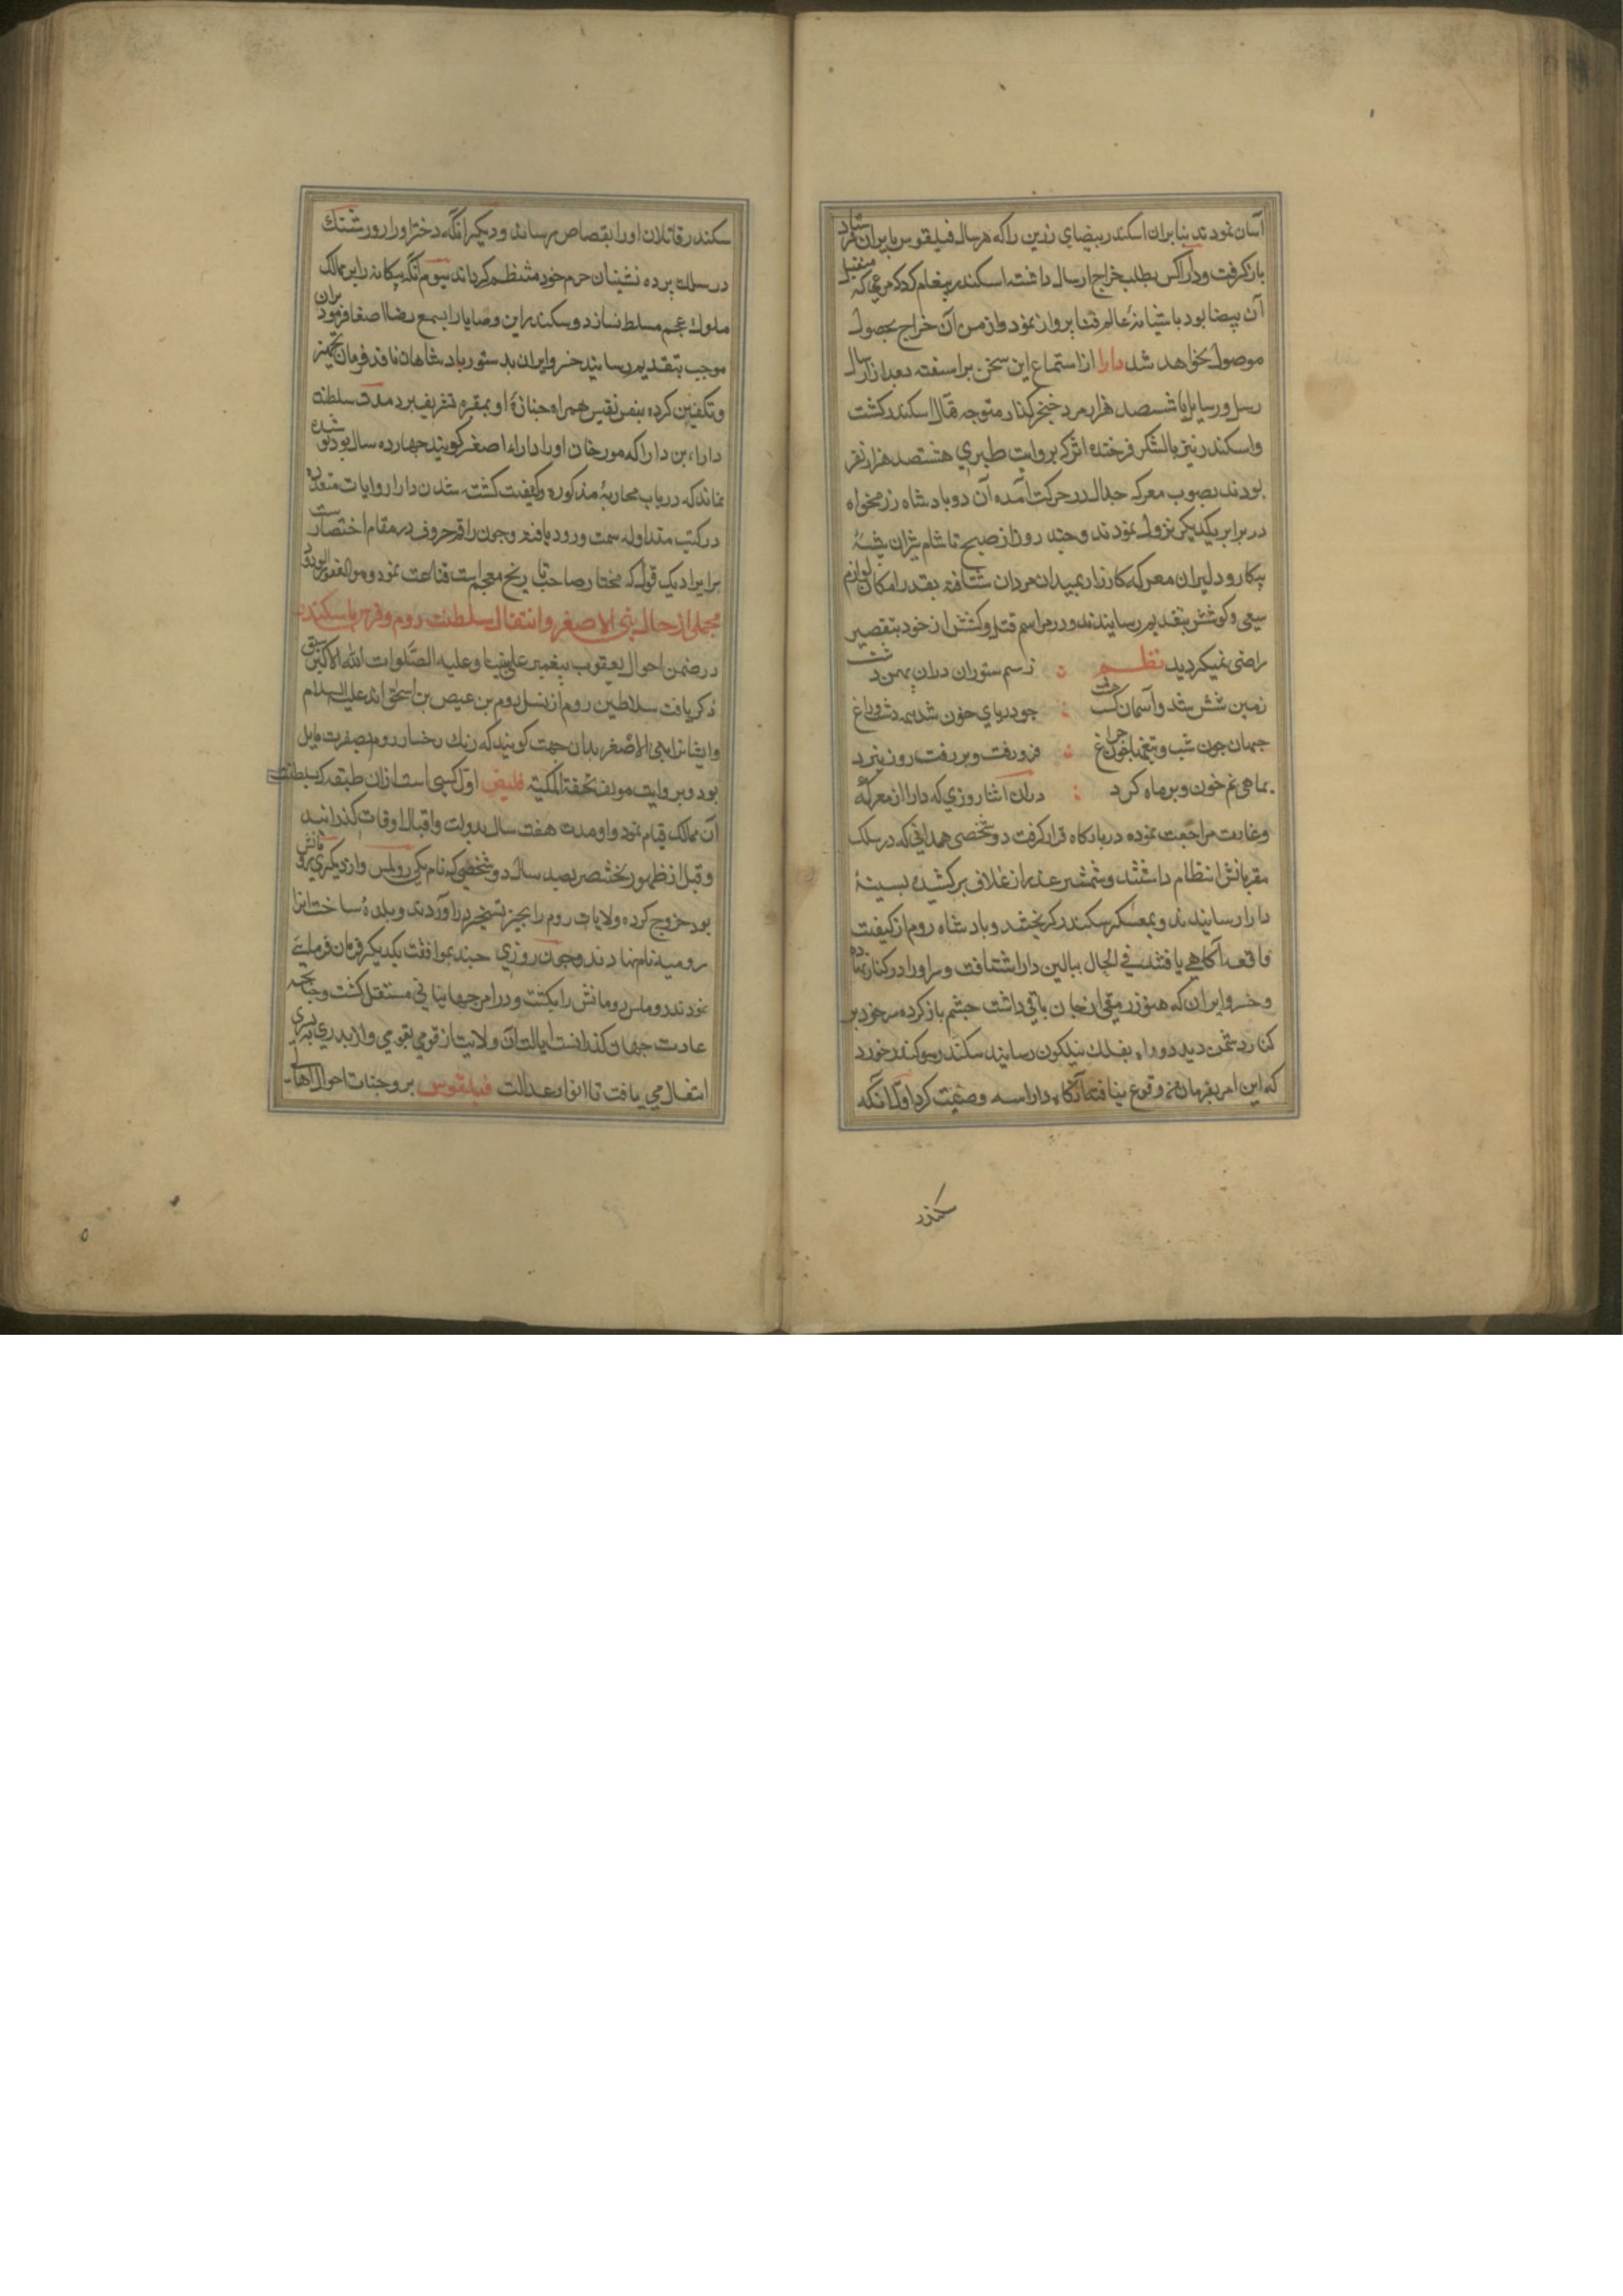 آسان نمودند بنابران اسکندر بیضای زرین را که هر سال فیلقوس بایران میفرستاد
باز گرفت و دارا کس بطلب خراج ارسال داشته اسکندر پیغام کرد که مرغی که
آن بیضا بود باشیانهٔ عالم فنا پرواز نمود و از من آن خراج بحصول
موصول نخواهد شد دارا از استماع این سخن براشفته بعد از ارسال
رسل و رسایل با ششصد هزار مرد خنجر گذار متوجه قتال اسکندر گشت
و اسکندر نیز با لشکر فرخنده اثر که بروایت طبری هشتصد هزار نفر
بودند بصوب معرکه جدال در حرکت آمده آن دو بادشاه رزمخواه
در برابر یکدیکر نزول نمودند و چند روز از صبح تا شام شیران بیشهٔ
پیکار و دلیران معرکه کارزار بمیدان مردان شتافته بقدر امکان لوازم
سعی و کوشش بتقدیم رسانیدند و در مراسم قتل و کشش از خود بتقصیر
راضی نمیکردید نظم ز سم ستوران دران پهن دشت
زمین شش شد و آسمان کشت هشت جو دریای خون شد همه دشت و راغ
جهان چون شب و تیغها چون چراغ فرو رفت و بر رفت روز نبرد
بماهی نم خون و بر ماه کرد در ان اثنا روزی که دارا از معرکه
و غارت مراجعت نموده در بارکاه قرار کرفت دو شخصی همدانی که در سلک
مقربانش انتظام داشتند و شمشیر عذر از غلاف بر کشیده بسینهٔ
دارا رسانیدند و بمعسکر سکندر کریختند و بادشاه روم از کیفیت
واقعه آکاهی یافته فی الحال ببالین دارا شتافت و سر او را در کنار نهاده
و خسرو ایران که هنوز رمقی از جان باقی داشت چشم باز کرده سر خود بر
کنار دشمن دید دود آه بفلک نیلکون رسانید سکندر سوکند خورد
که این امر بفرمان من وقوع نیافته آنکاه دارا سه وصیت کرد اول آنکه
سکندر
سکندر قاتلان او را بقصاص رساند و دیکر انکه دختر او را روشنک
در سلک پرده نشینان حرم خود منتظم کرداند سیوم آنکه بیکانه را بر ممالک
ملوک عجم مسلط نسازد و سکندر این وصایا را بسمع رضا اصغا فرمود بران
موجب بتقدیم رسانید خسرو ایران بدستور بادشاهان نافذ فرمان تجهیز
و تکفین کرده بنفس نفیس همراه جنازهٔ او بمقبره تشریف برد مدت سلطنت
دارا بن دارا که مورخان او را دارا اصغر کویند چهارده سال بود
نماند که در باب محاربهٔ مذکوره و کیفیت کشته شدن دارا روایات متعدده
در کتب متداوله سمت ورود یافته و چون راقم حروف در مقام اختصار است
بر ایراد یک قول که مختار صاحب تاریخ معجم است قناعت نمود و هو الغفور الودود
مجملی از حال بنی الاصفر و انتقال سلطنت روم و فرس باسکندر
در ضمن احوال یعقوب پیغمبر علی نبینا و علیه الصلوات الله الاکبر سبق
ذکر یافت سلاطین روم از نسل روم بن عیص بن اسحق اند علیه السلام
و ایشانرا بنی الاصفر بدان جهت کویند که رنک رخسار روم بصفرت مایل
بود و بروایت مولف تحفة الملکیه فلیص اول کسی است ازان طبقه که بسلطنت
آن ممالک قیام نمود و او مدت هفت سال بدولت و اقبال اوقات کذرانید
و قبل از ظهور بختنصر بصد سال دو شخصی که نام یکی روملس و از دیکری رومانش
بود خروج کرده ولایات روم را بحیز تسخیر در آوردند و بلدهٔ ساخت انرا
رومیه نام نهادند و چون روزی چند بموافقت یکدیکر فرمان فرمایی
نمودند روملس رومانش را بکشت و در امر جهانبانی مستقل کشت و چنانچه
عادت جهان کذرانست ایالت آن ولایت از قومی بقومی و از پدری به پسری
انتقال می یافت تا انوار عدالت فیلقوس بر وجنات احوال اهالی